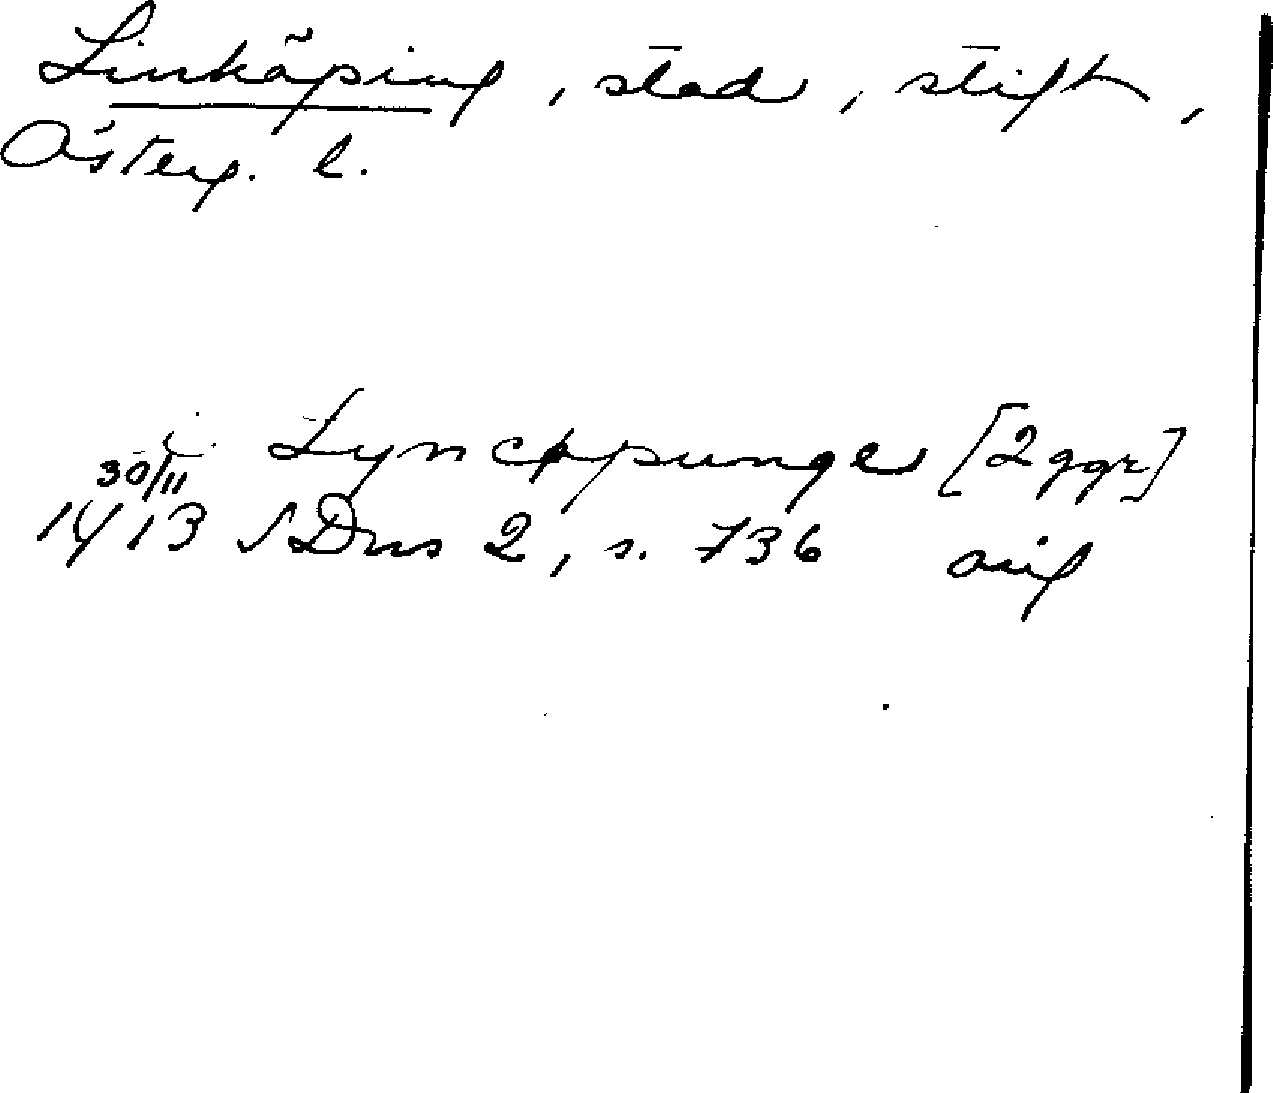 Linköping, stad, stift,
Österg. l.
i Lyncøpunge [2 ggr]
30/11
1413 SDns 2, s. 736 orig